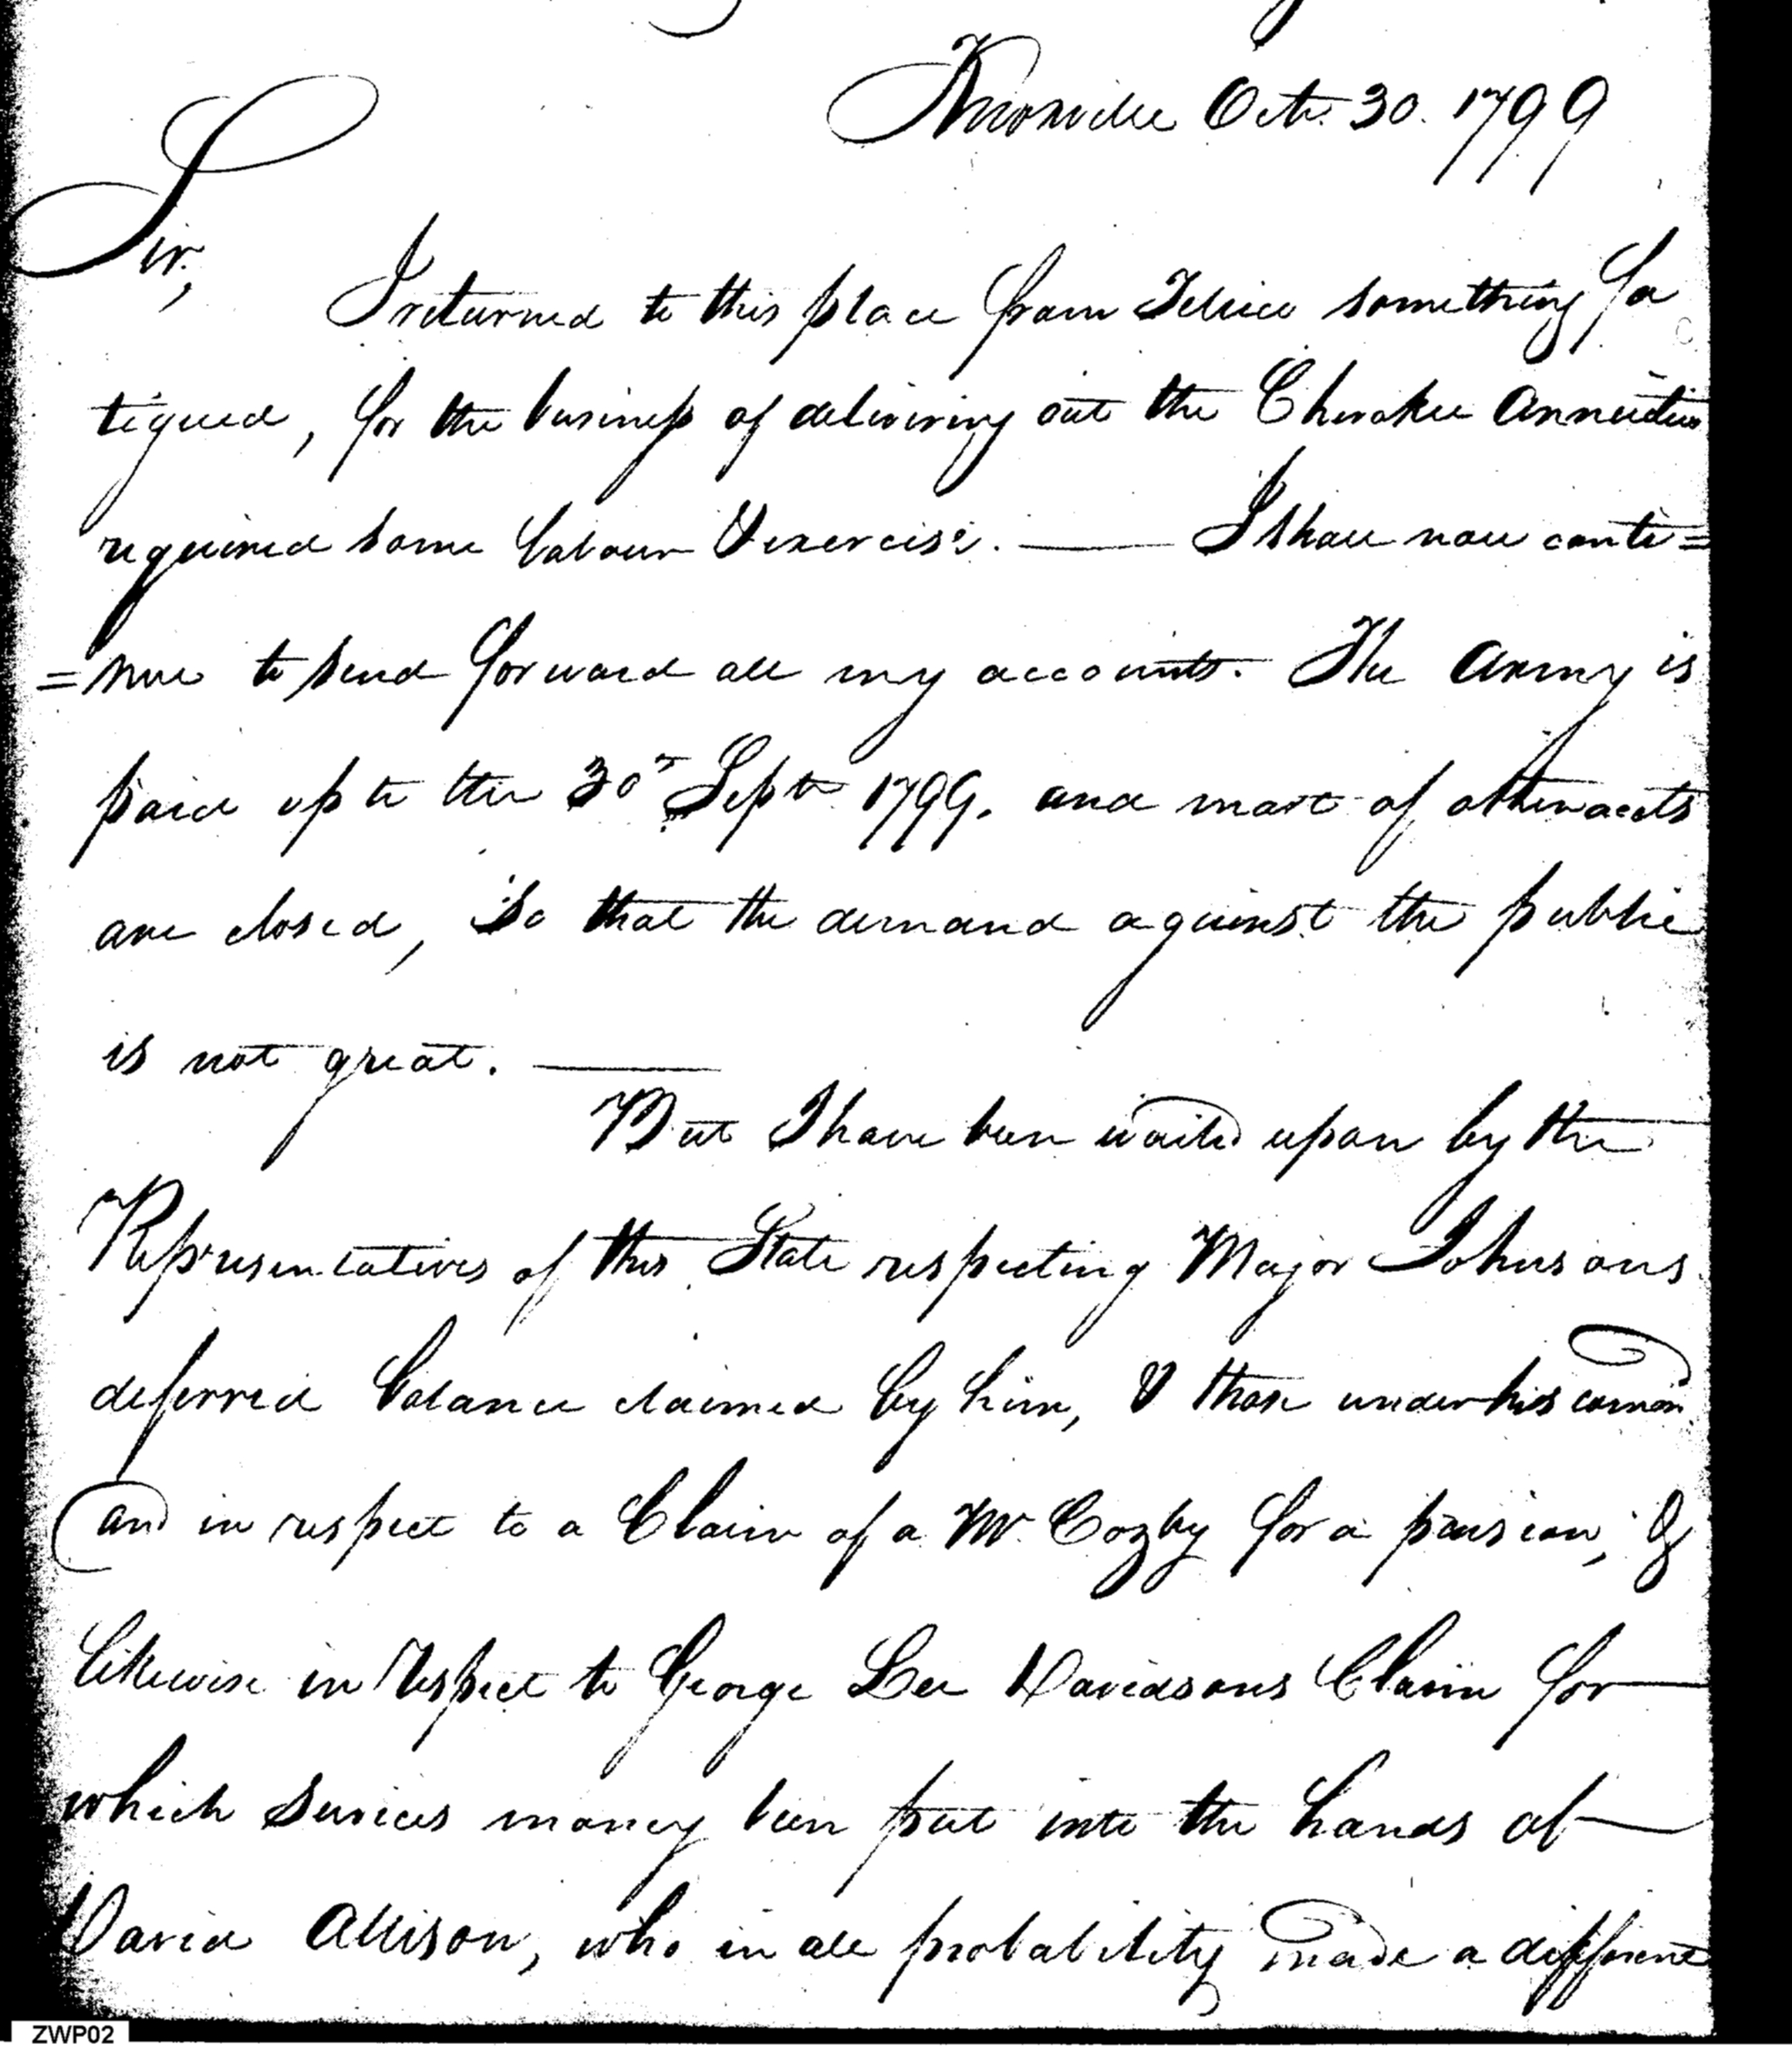 Knoxville Octr. 30. 1799
Sir,
I returned to this place from Tellico something fa
tigued, for the business of delivering out the Cherokee Annuities
required some labour & exercise. — I shall now conti=
=nue to send forward all my accounts. The Army is
paid up to the 30th Septr. 1799. and most of other accts
are closed, so that the demand against the public
is not great. —
But I have been waited upon by the
Representatives of this State respecting Major Johnsons
deferred balance claimed by him, & those under his comand
and in respect to a Claim of a Mr. Cozby for a pension, &
likewise in respect to George Lee Davidsons Claim for
which services money been put into the hands of
David Allison, who in all probability made a different
ZWP02